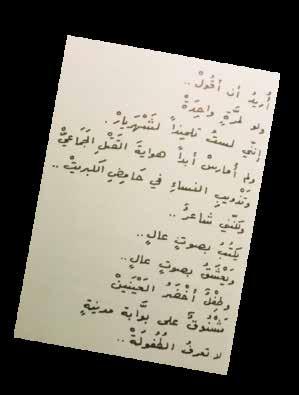 أُريدُ أن أقُولْ ..
ولو لمرَّةٍ واحِدَةْ
إنني لستُ تلميذاً لشَهْرَيارْ .
ولم أُمارسْ أبداً هوايةَ القَتْلِ الجَمَاعيّْ
وتَذْويبِ النساءِ في حَامِضِ الكبريتْ ..
ولكنّني شاعرٌ ..
يكتُبُ بصوتٍ عالٍ ..
ويَعْشَقُ بصوتٍ عالٍ ..
وطِفْلٌ أَخْضَرُ العَيْنَيْنْ
مَشْنُوقٌ على بَوَّابة مدينةٍ
لا تعرفُ الطُفُولَةْ ..